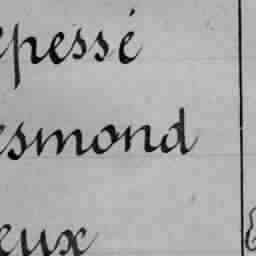 epessé
esmond
eux